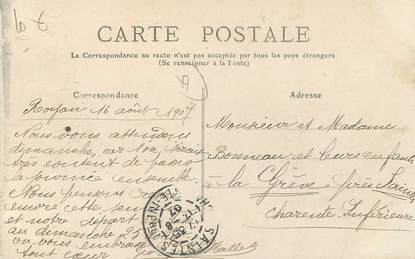 10 €
CARTE POSTALE
La Correspondance au recto n'est pas acceptée par tous les pays étrangers
(Se renseigner à la Poste)
Correspondance
Royan 16 août 1907
Nous vous attendons
dimanche, car on serait
très content de passer
la journée ensemble
Nous pensons
encore cette
et notre départ
au dimanche 25
on vous embrasse
tout cœur
Adresse
Monsieur et Madame
Bonneau et leurs enfants
à la Grève près Saint
Charente Inférieure
SAINTES